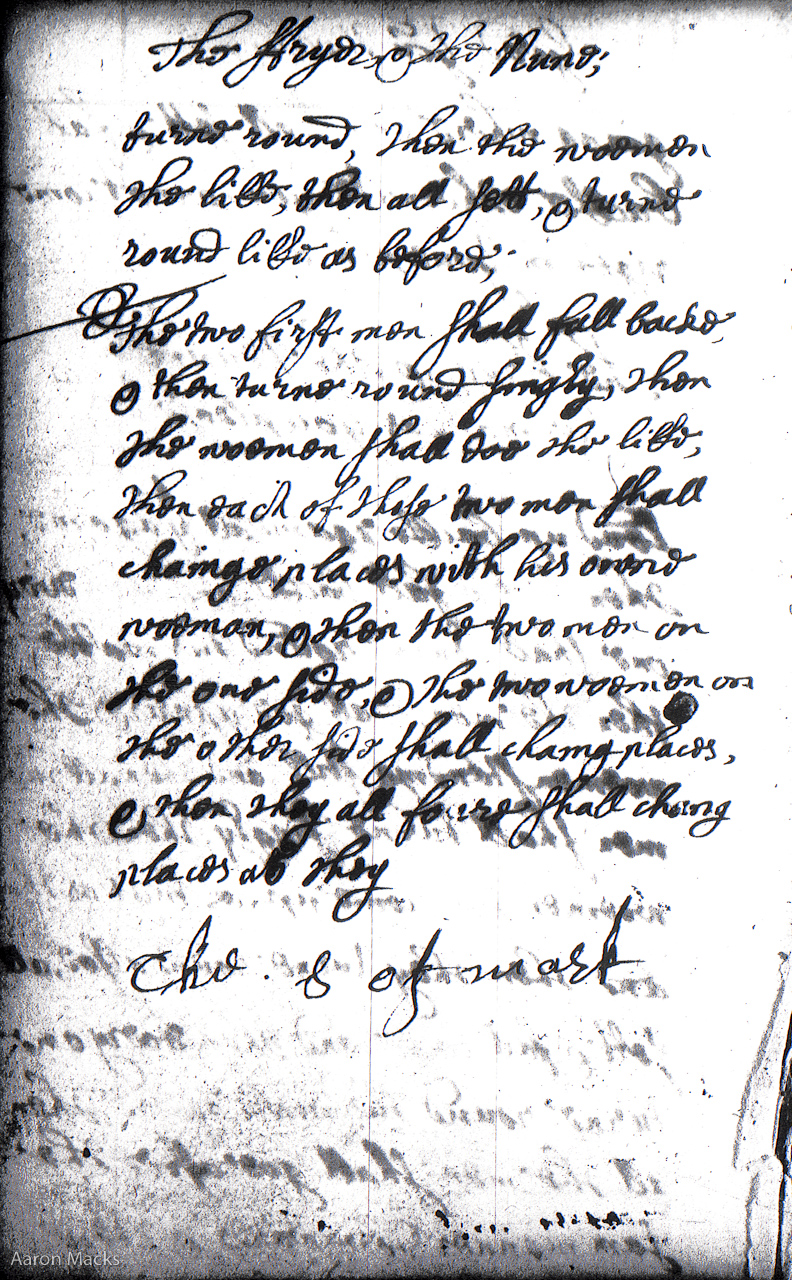 The ffryer & the Nune;
turne round, then the woemen
the like, then all sett, & turne
round like as before;
The two first men shall fall backe,
& then turne round singly, then
the woemen shall doe the like,
then each of these two men shall
chainge places with his owne
woeman, & then the two men on
the one side, & the two woemen on
the other side shall chaing places,
& then they all foure shall chang
places as they
The . 8 of
Aaron Macks